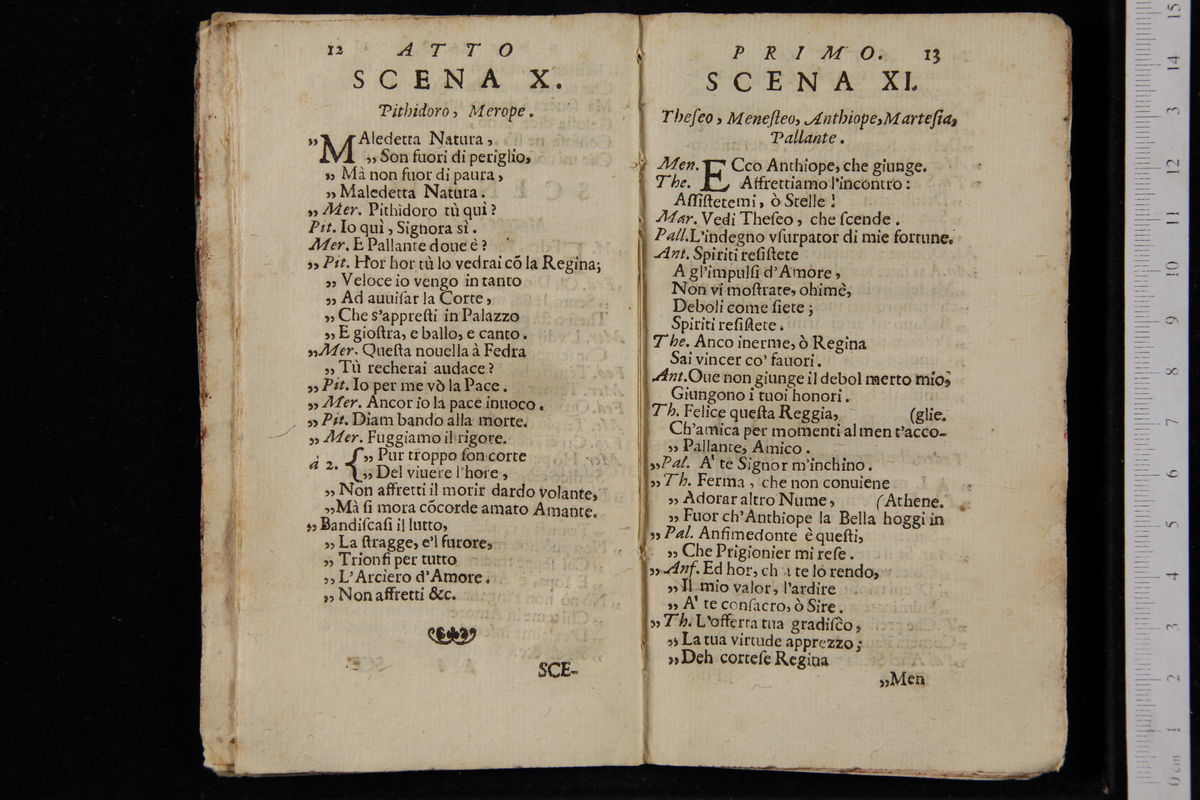 12 ATTO
SCENA X.
Pithidoro, Merope.
„ MAledetta Natura,
„ Son fuori di periglio,
„ Mà non fuor di paura,
„ Maledetta Natura.
„ Mer. Pithidoro tù quì?
Pit. Io quì, Signora sì.
Mer. E Pallante doue è?
„ Pit. Hor hor tù lo vedrai cõ la Regina;
„ Veloce io vengo in tanto
„ Ad auuiſar la Corte,
„ Che s'appreſti in Palazzo
„ E gioſtra, e ballo, e canto.
„ Mer. Queſta nouella à Fedra
„ Tù recherai audace?
„ Pit. Io per me vò la Pace.
„ Mer. Ancor io la pace inuoco.
„ Pit. Diam bando alla morte.
„ Mer. Fuggiamo il rigore.
à 2. { „ Pur troppo ſon corte
„ Del viuere l'hore,
„ Non affretti il morir dardo volante,
„ Mà ſi mora cõcorde amato Amante.
„ Bandiſcaſi il lutto,
„ La ſtragge, e'l furore,
„ Trionfi per tutto
„ L'Arciero d'Amore.
„ Non affretti &c.
SCE-
PRIMO. 13
SCENA XI.
Theſeo, Meneſteo, Anthiope, Marteſia,
Pallante.
Men. ECco Anthiope, che giunge.
The. Affrettiamo l'incontro:
Aſſiſtetemi, ò Stelle!
Mar. Vedi Theſeo, che ſcende.
Pall. L'indegno vſurpator di mie fortune.
Ant. Spiriti reſiſtete
A gl'impulſi d'Amore,
Non vi moſtrate, ohimè,
Deboli come ſiete;
Spiriti reſiſtete.
The. Anco inerme, ò Regina
Sai vincer co' fauori.
Ant. Oue non giunge il debol merto mio,
Giungono i tuoi honori.
Th. Felice queſta Reggia, (glie.
Ch'amica per momenti al men t'acco-
„ Pallante, Amico.
„ Pal. A' te Signor m'inchino.
„ Th. Ferma, che non conuiene
„ Adorar altro Nume, (Athene.
„ Fuor ch'Anthiope la Bella hoggi in
„ Pal. Anſimedonte è queſti,
„ Che Prigionier mi reſe.
„ Anſ. Ed hor, ch a te lo rendo,
„ Il mio valor, l'ardire
„ A' te conſacro, ò Sire.
„ Th. L'offerta tua gradiſco,
„ La tua virtude apprezzo;
„ Deh corteſe Regina
„ Men